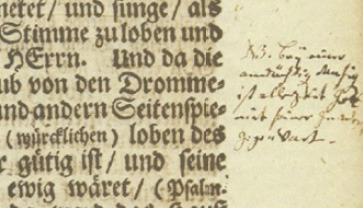 netet/ und sunge/ als
Stimme zu loben und
HErrn. Und da die
ub von den Dromme-
und andern Seitenspie-
(würcklichen) loben des
r gütig ist/ und seine
ewig wäret/ (Psalm.
NB. Bey einer
andächtigen Musiq
ist allezeit Gott
mit seiner Gnaden
Gegenwart.